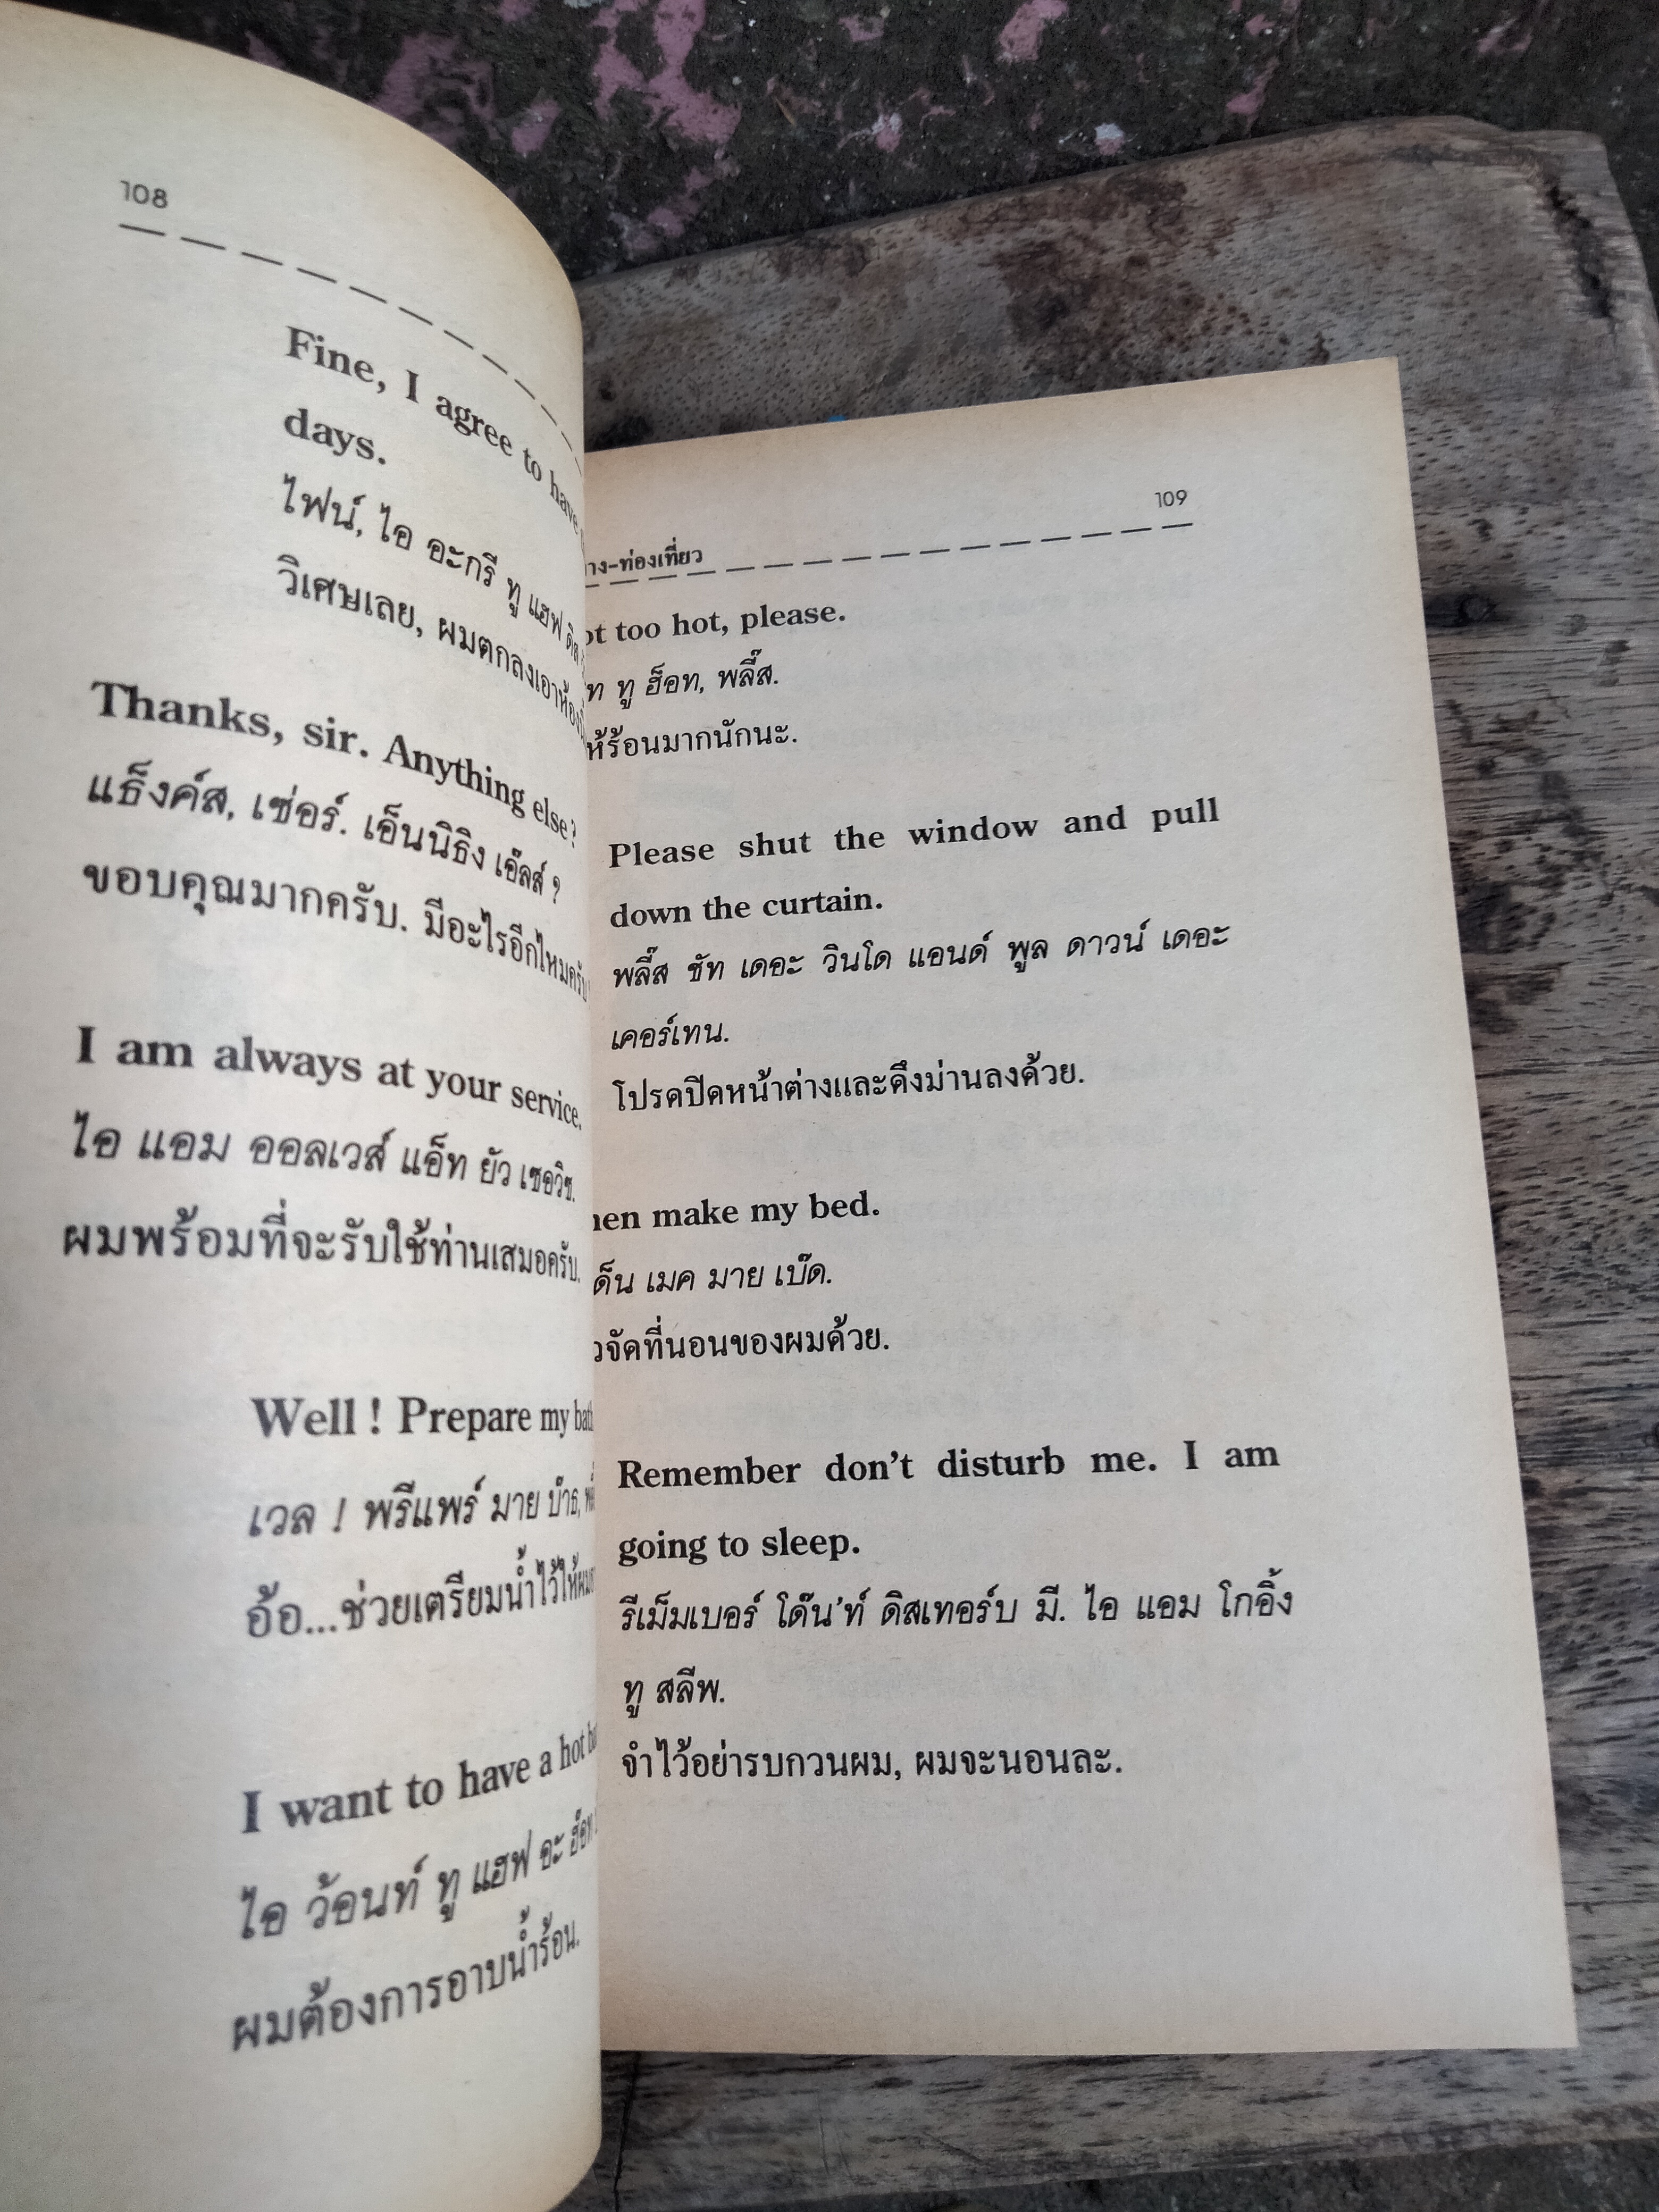 108
Fine, I agree to have
days.
ไฟน์, ไอ อะกรี ทู แฮฟ
วิเศษเลย, ผมตกลงเอาห้อง
Thanks, sir. Anything else?
แธ็งค์ส, เซ่อร์. เอ็นนิธิง เอ๊ลส์ ?
ขอบคุณมากครับ. มีอะไรอีกไหมครับ
I am always at your service.
ไอ แอม ออลเวส์ แอ็ท ยัว เซอวิซ.
ผมพร้อมที่จะรับใช้ท่านเสมอครับ.
Well ! Prepare my
เวล ! พรีแพร์ มาย บำธ,
อ้อ...ช่วยเตรียมน้ำไว้ให้ผม
I want to have a hot
ไอ ว้อนท์ ทู แฮฟ อะ ฮ็อท
ผมต้องการอาบน้ำร้อน.
109
าง-ท่องเที่ยว
ot too hot, please.
ท ทู ฮ็อท, พลี๊ส.
ห้ร้อนมากนักนะ.
Please shut the window and pull
down the curtain.
พลี๊ส ชัท เดอะ วินโด แอนด์ พูล ดาวน์ เดอะ
เคอร์เทน.
โปรดปิดหน้าต่างและดึงม่านลงด้วย.
hen make my bed.
ด็น เมค มาย เบ๊ด.
วจัดที่นอนของผมด้วย.
Remember don't disturb me. I am
going to sleep.
รีเม็มเบอร์ โด๊น'ท์ ดิสเทอร์บ มี. ไอ แอม โกอิ้ง
ทู สลีพ.
จำไว้อย่ารบกวนผม, ผมจะนอนละ.